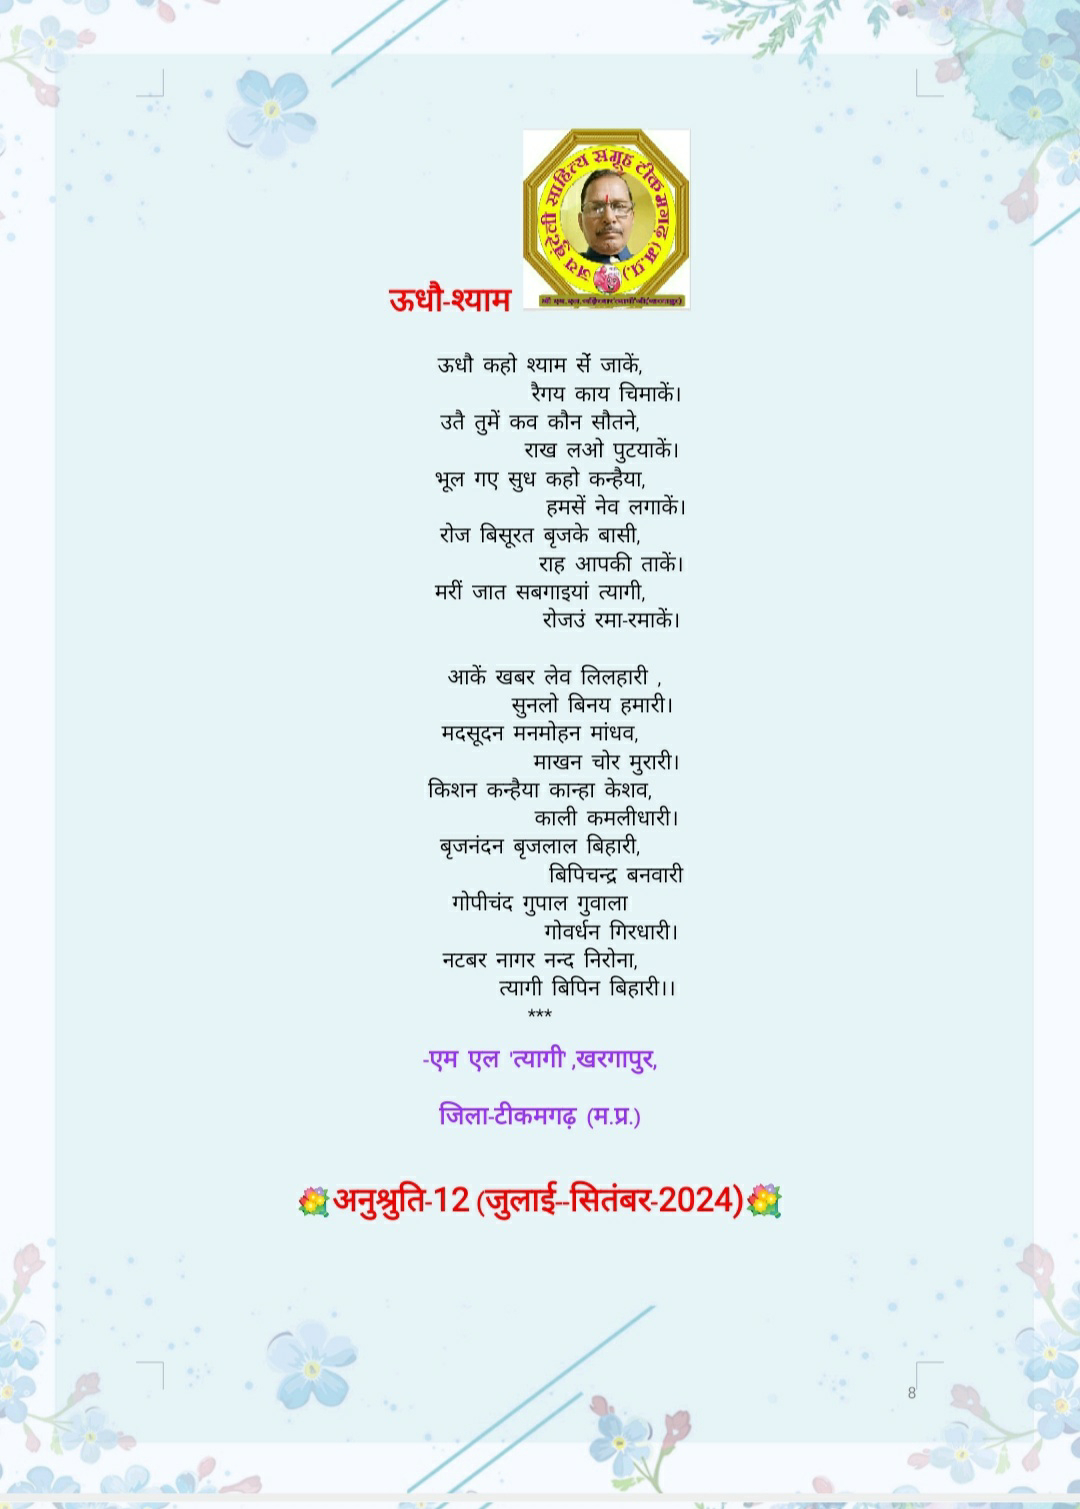 जय बुंदेली साहित्य समूह टीकमगढ़ (म.प्र.)
ऊधौ-श्याम
ऊधौ कहो श्याम सें जाकें,
रैगय काय चिमाकें।
उतै तुमें कव कौन सौतने,
राख लओ पुटयाकें।
भूल गए सुध कहो कन्हैया,
हमसें नेव लगाकें।
रोज बिसूरत बृजके बासी,
राह आपकी ताकें।
मरीं जात सबगाइयां त्यागी,
रोजउं रमा-रमाकें।
आकें खबर लेव लिलहारी ,
सुनलो बिनय हमारी।
मदसूदन मनमोहन मांधव,
माखन चोर मुरारी।
किशन कन्हैया कान्हा केशव,
काली कमलीधारी।
बृजनंदन बृजलाल बिहारी,
बिपिचन्द्र बनवारी
गोपीचंद गुपाल गुवाला
गोवर्धन गिरधारी।
नटबर नागर नन्द निरोना,
त्यागी बिपिन बिहारी।।
***
-एम एल 'त्यागी' ,खरगापुर,
जिला-टीकमगढ़ (म.प्र.)
अनुश्रुति-12 (जुलाई--सितंबर-2024)
8